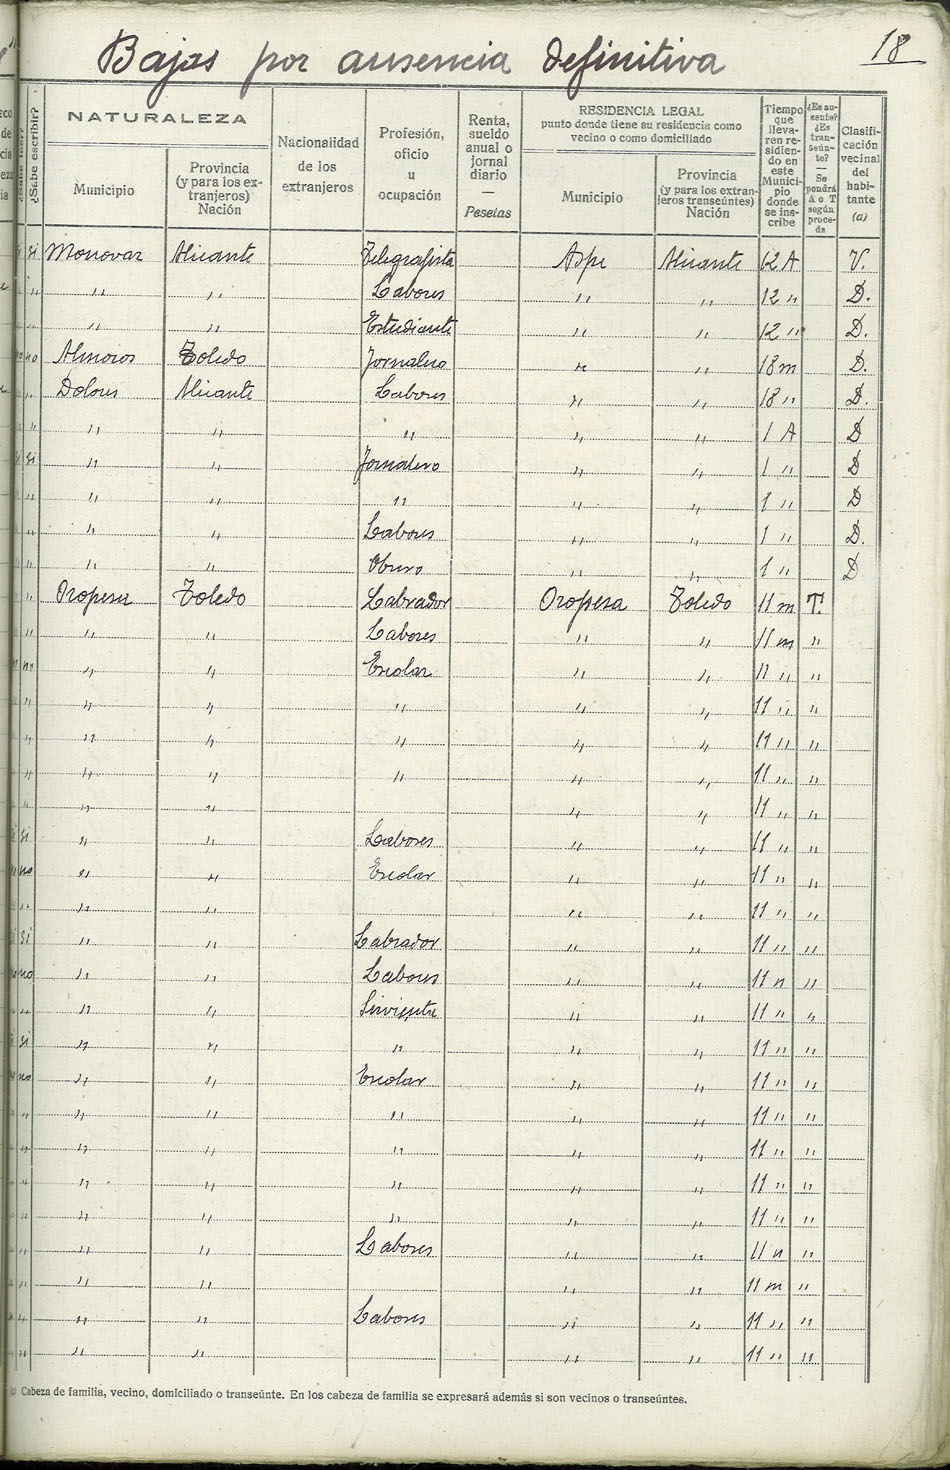 Bajas por ausencia definitiva
18
¿Sabe leer?
¿Sabe escribir?
NATURALEZA
Municipio
Provincia (y para los extranjeros) Nación
Nacionalidad de los extranjeros
Profesión, oficio u ocupación
Renta, sueldo anual o jornal diario — Pesetas
RESIDENCIA LEGAL
punto donde tiene su residencia como vecino o como domiciliado
Municipio
Provincia (y para los extranjeros transeúntes) Nación
Tiempo que llevaren residiendo en este Municipio donde se inscribe
¿Es ausente? ¿Es transeúnte? — Se pondrá A o T según proceda
Clasificación vecinal del habitante (a)
si Monovar Alicante Telegrafista Aspe Alicante 12 A V.
" " " Labores " " 12 " D.
" " " Estudiante " " 12 " D.
no Almorox Toledo Jornalero " " 18 m D.
" Dolores Alicante Labores " " 18 " D.
" " " " " " 1 A D
si " " Jornalero " " 1 " D
" " " " " " 1 " D
" " " Labores " " 1 " D.
" " " Obrero " " 1 " D
" Oropesa Toledo Labrador Oropesa Toledo 11 m T.
" " " Labores " " 11 m "
no " " Escolar " " 11 " "
" " " " " " 11 " "
" " " " " " 11 " "
" " " " " " 11 " "
" " " " " 11 " "
si " " Labores " " 11 " "
no " " Escolar " " 11 " "
" " " " " 11 " "
si " " Labrador " " 11 " "
no " " Labores " " 11 " "
" " " Sirviente " " 11 " "
si " " " " " 11 " "
no " " Escolar " " 11 " "
" " " " " " 11 " "
" " " " " " 11 " "
" " " " " " 11 " "
" " " " " " 11 " "
" " " Labores " " 11 " "
" " " " " 11 m "
" " " Labores " " 11 " "
" " " " " 11 " "
(a) Cabeza de familia, vecino, domiciliado o transeúnte. En los cabeza de familia se expresará además si son vecinos o transeúntes.